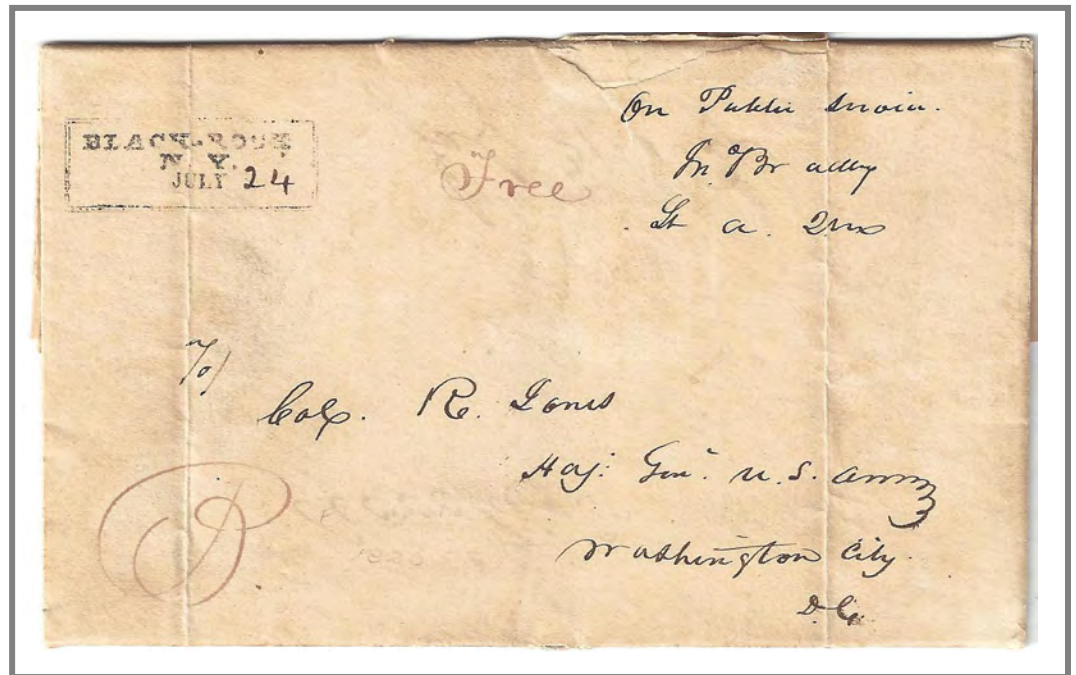 BLACK-ROCK
N. Y.
JULY 24
Free
On Public Service.
Bradley
Lt a.
To/
Col. R. Jones
Adj: Gen: U.S. Army
Washington City.
D.C.